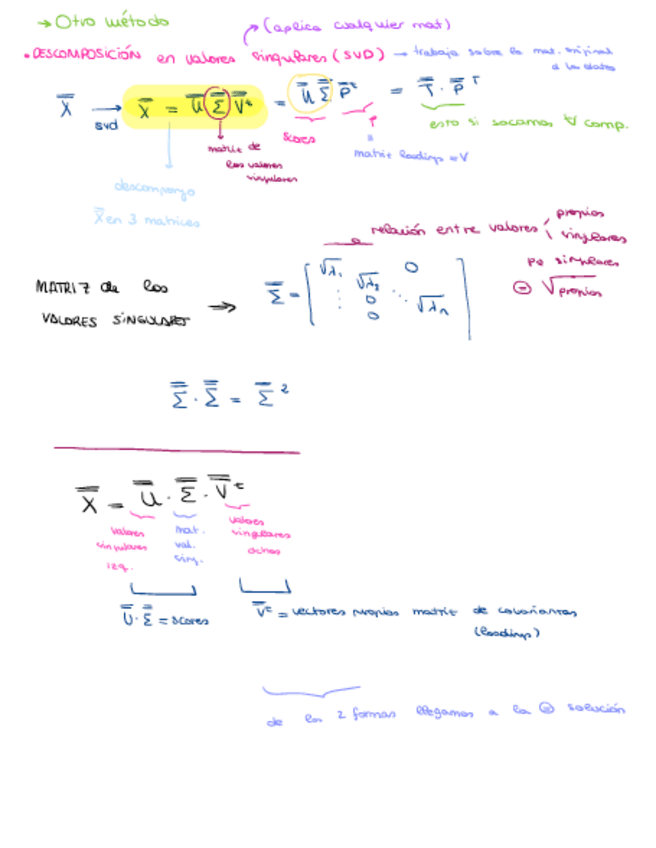 → Otro método
(aplica cualquier mat)
• DESCOMPOSICIÓN en valores singulares (SVD) → trabaja sobre la mat. original
X → svd X = U Σ Vᵗ = U Σ Pᵗ = T · Pᵀ
esto si sacamos ∀ comp.
scores
P = matriz loadings = V
matriz de
los valores
singulares
descompongo
X en 3 matrices
relación entre valores { propios
singulares
singulares
= √propios
MATRIZ de los
VALORES SINGULARES → Σ = [ √λ₁ √λ₂ 0 ⋮ 0 ⋱ √λₙ 0 ]
Σ · Σ = Σ²
X = U · Σ · Vᵗ
valores
singulares
izq.
mat.
val.
sing.
valores
singulares
dchos
U · Σ = scores
Vᵗ = vectores propios matriz de covarianzas
(loadings)
de las 2 formas llegamos a la = solución